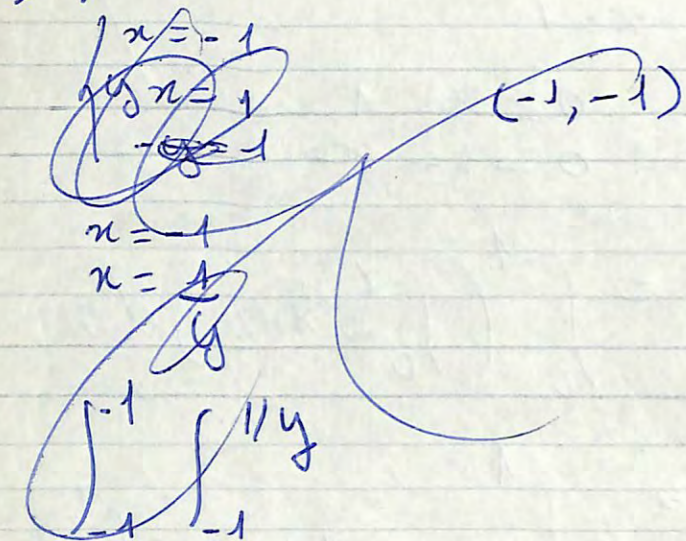 x = -1
yx = 1 (-1, -1)
-y = 1
x = -1
x = 1/y
∫_{-1}^{-1} ∫_{-1}^{1/y}